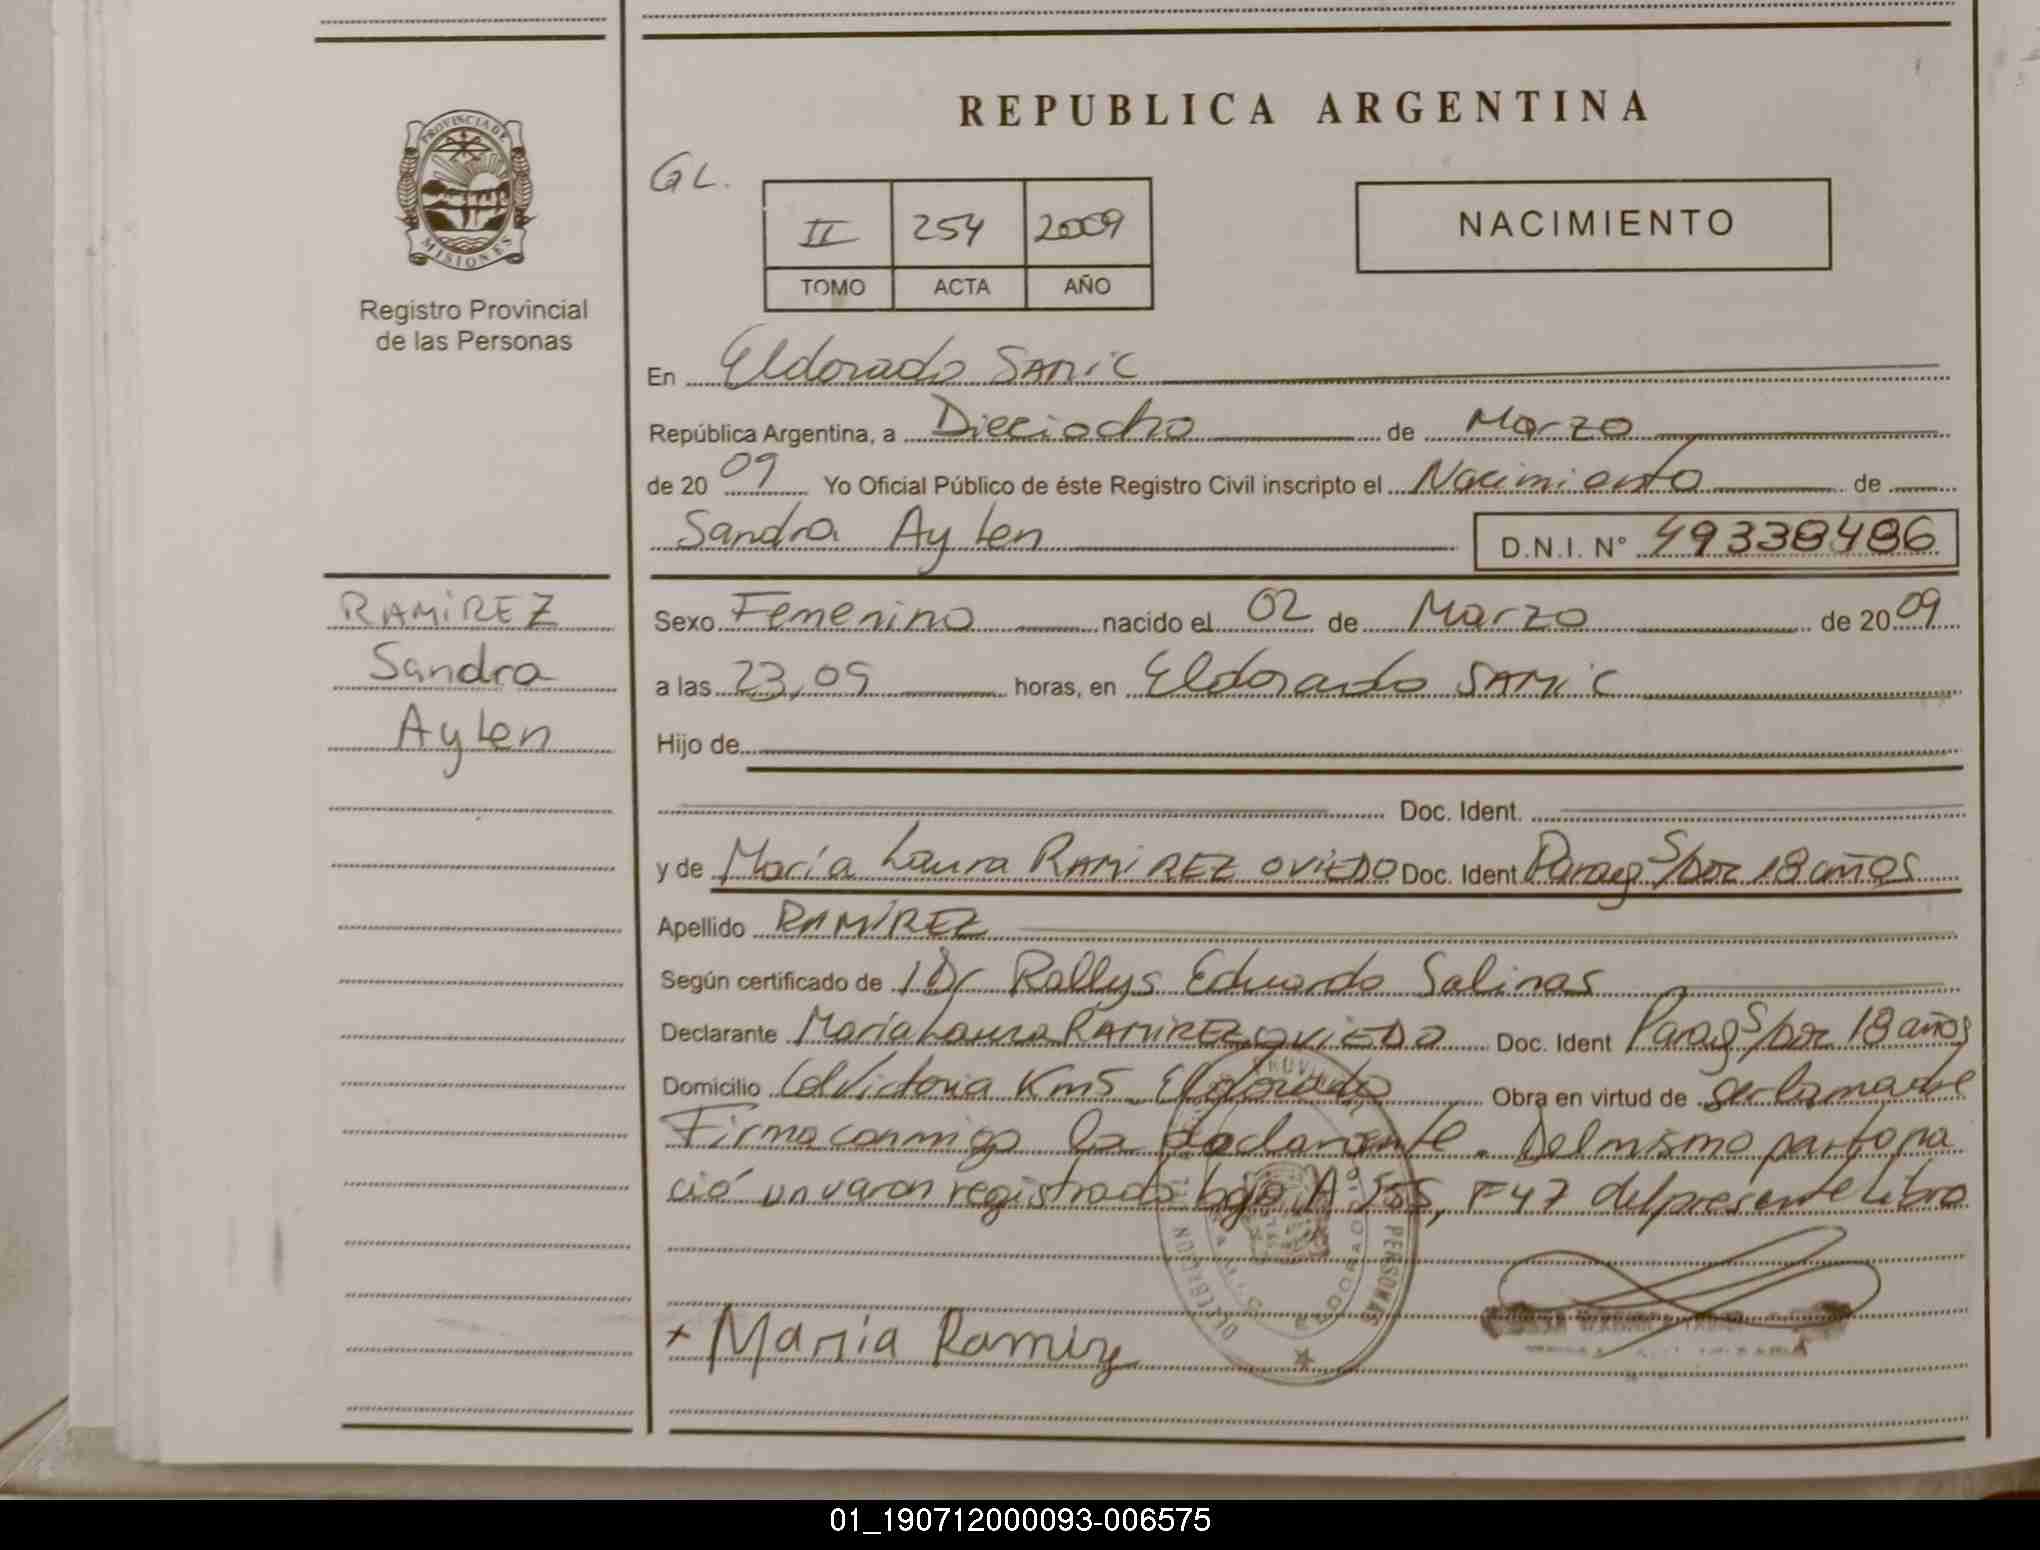 REPUBLICA ARGENTINA
PROVINCIA DE
MISIONES
Registro Provincial
de las Personas
GL.
II 254 2009
TOMO ACTA AÑO
NACIMIENTO
En Eldorado SAMiC
República Argentina, a Dieciocho de Marzo
de 2009 Yo Oficial Público de éste Registro Civil inscripto el Nacimiento de
Sandra Aylen D.N.I. N° 49338486
RAMIREZ
Sandra
Aylen
Sexo Femenino nacido el 02 de Marzo de 2009
a las 23,09 horas, en Eldorado SAMiC
Hijo de
Doc. Ident.
y de María Laura RAMIREZ OVIEDO Doc. Ident Parag S/Doc 18 años
Apellido RAMÍREZ
Según certificado de Dr Rallys Eduardo Salinas
Declarante María Laura RAMIREZ OVIEDO Doc. Ident Parag S/Doc 18 años
Domicilio Col Victoria Km5 Eldorado Obra en virtud de ser la madre
Firma conmigo la declarante. Del mismo parto na
ció un varon registrado bajo A 255, F 47 del presente libro
PERSONAS
ELDORADO
x María Ramirez
01_190712000093-006575